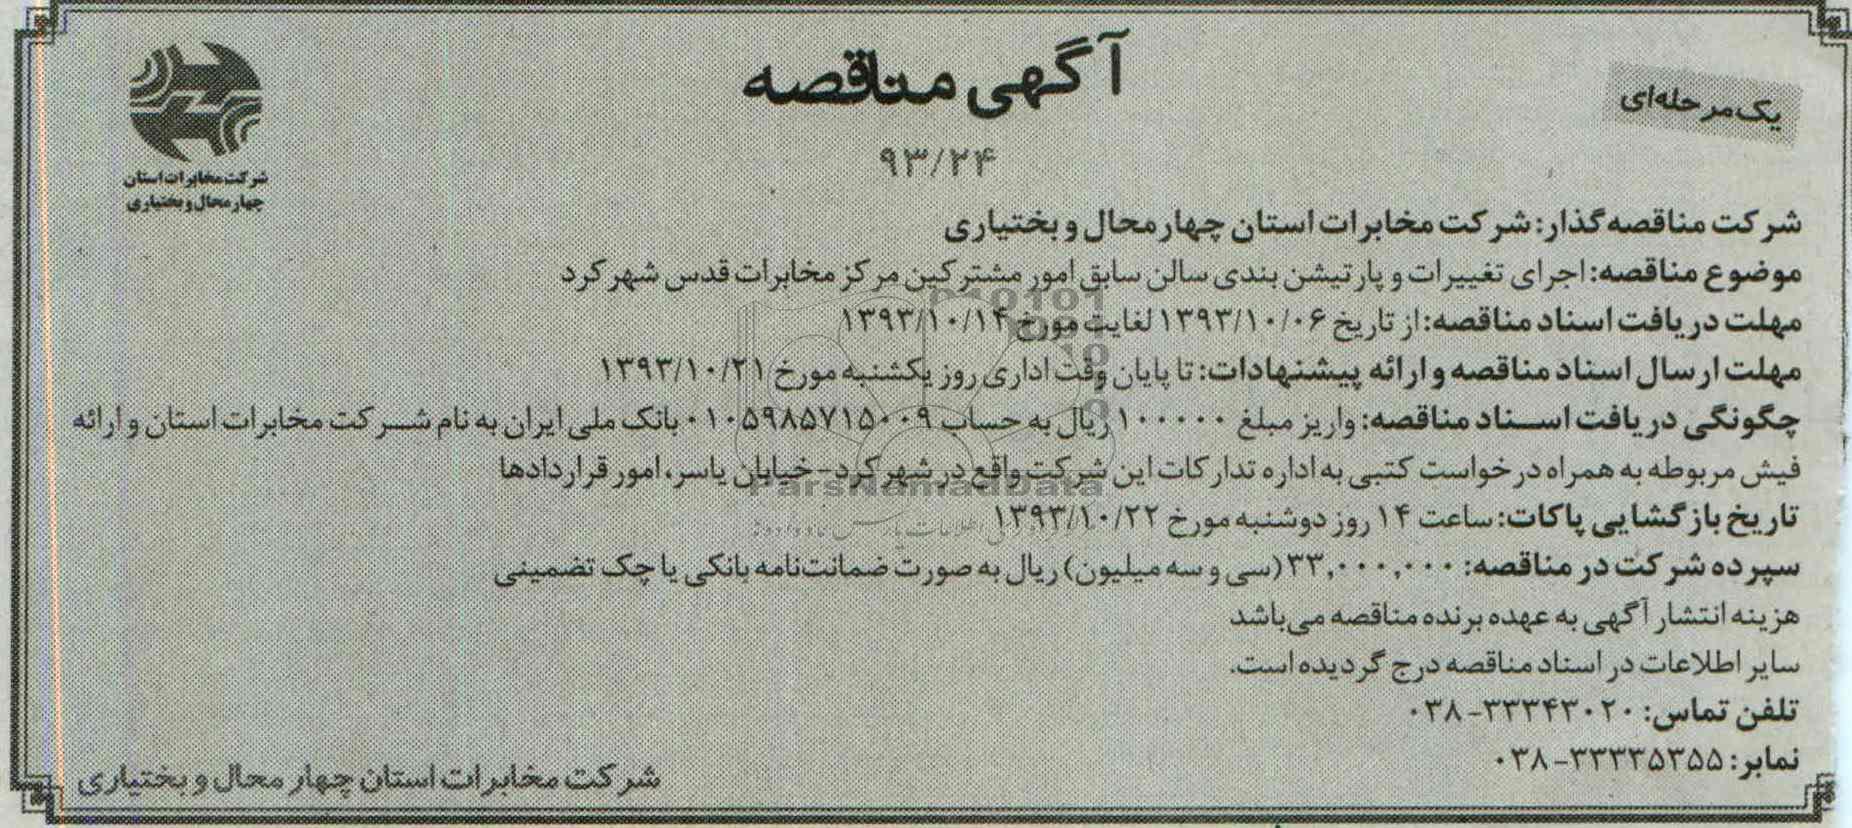 یک‌مرحله‌ای
آگهی مناقصه
۹۳/۲۴
شرکت مخابرات استان
چهارمحال و بختیاری
شرکت مناقصه‌گذار: شرکت مخابرات استان چهارمحال و بختیاری
موضوع مناقصه: اجرای تغییرات و پارتیشن بندی سالن سابق امور مشترکین مرکز مخابرات قدس شهرکرد
مهلت دریافت اسناد مناقصه: از تاریخ ۱۳۹۳/۱۰/۰۶ لغایت مورخ ۱۳۹۳/۱۰/۱۴
مهلت ارسال اسناد مناقصه و ارائه پیشنهادات: تا پایان وقت اداری روز یکشنبه مورخ ۱۳۹۳/۱۰/۲۱
چگونگی دریافت اسناد مناقصه: واریز مبلغ ۱۰۰۰۰۰ ریال به حساب ۰۱۰۵۹۸۵۷۱۵۰۰۹ بانک ملی ایران به نام شرکت مخابرات استان و ارائه
فیش مربوطه به همراه درخواست کتبی به اداره تدارکات این شرکت واقع در شهرکرد- خیابان یاسر، امور قراردادها
ParsNamadData
تاریخ بازگشایی پاکات: ساعت ۱۴ روز دوشنبه مورخ ۱۳۹۳/۱۰/۲۲
سپرده شرکت در مناقصه: ۳۳,۰۰۰,۰۰۰ (سی و سه میلیون) ریال به صورت ضمانت‌نامه بانکی یا چک تضمینی
هزینه انتشار آگهی به عهده برنده مناقصه می‌باشد
سایر اطلاعات در اسناد مناقصه درج گردیده است.
تلفن تماس: ۳۳۳۴۳۰۲۰-۰۳۸
نمابر: ۳۳۳۳۵۳۵۵-۰۳۸
شرکت مخابرات استان چهارمحال و بختیاری